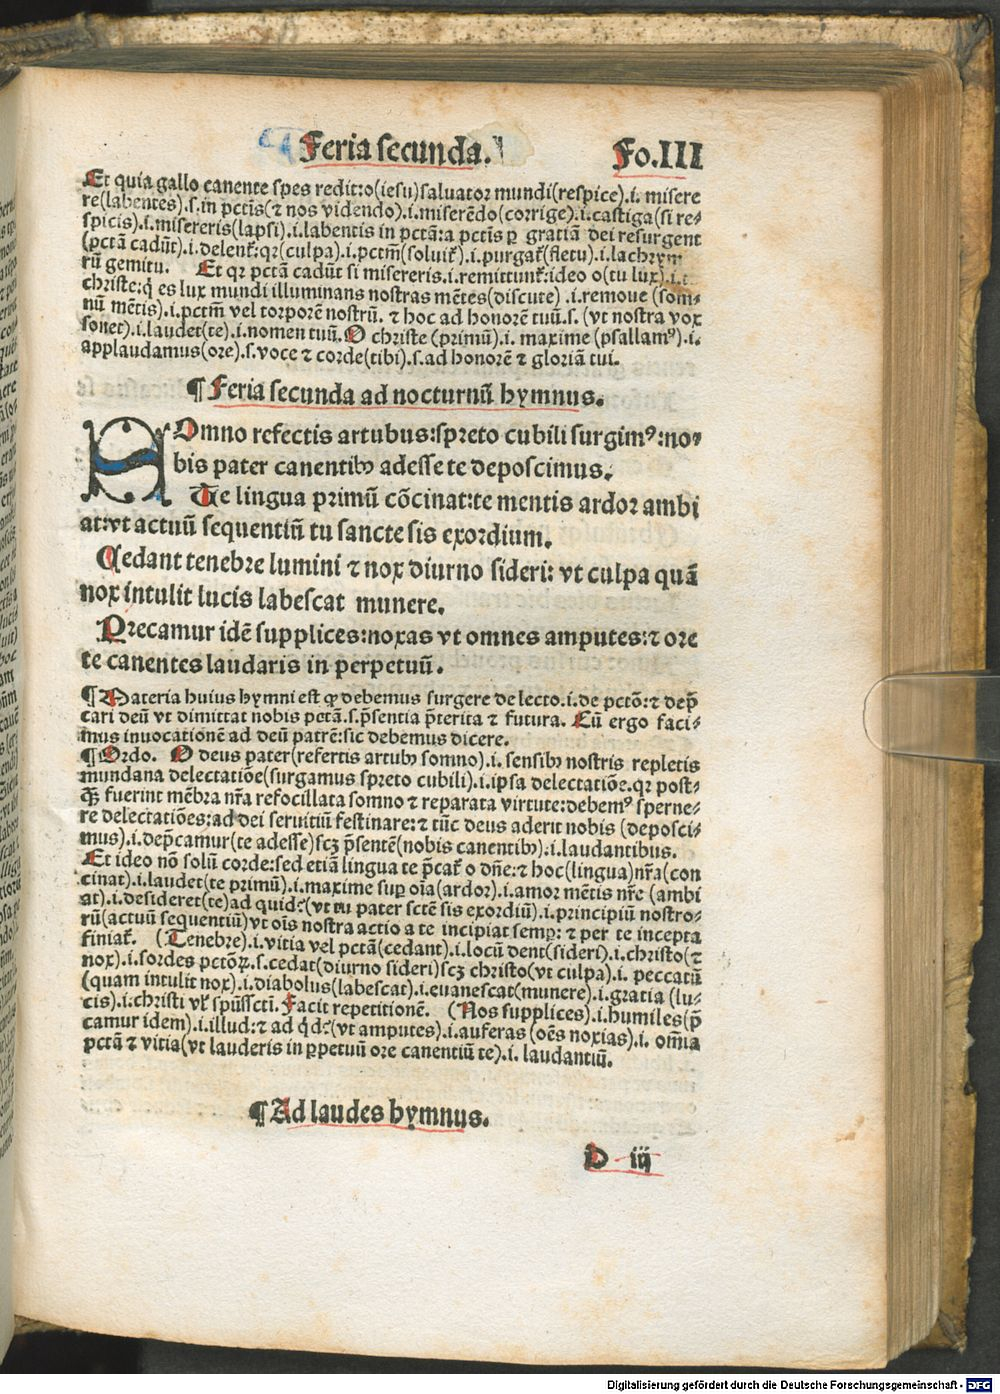 Feria secunda. Fo.III
Et quia gallo canente spes redit:o(iesu)saluator mundi(respice).i. misere
re(labentes).s.in pctīs(⁊ nos videndo).i.miserēdo(corrige).i.castiga(si re⸗
spicis).i.misereris(lapsi).i.labentis in pctām:a pctīs ꝑ gratiā dei resurgent
(pctā cadūt).i.delenť:qr(culpa).i.pctm̄(soluiť).i.purgať(fletu).i.lachrym
rū gemitu. Et qr pctā cadūt si misereris.i.remittunť:ideo o(tu lux).i.
christe:q̇ es lux mundi illuminans nostras mētes(discute) .i.remoue (som⸗
nū mētis).i.pctm̄ vel torporē nostrū. ⁊ hoc ad honorē tuū.s. (vt nostra vox
sonet).i.laudet(te).i.nomen tuū. O christe (primū).i. maxime (psallamꝰ).i.
applaudamus(ore).s.voce ⁊ corde(tibi).s.ad honorē ⁊ gloriā tui.
¶ Feria secunda ad nocturnū hymnus.
SOmno refectis artubus:spreto cubili surgimꝰ:no⸗
bis pater canentibꝫ adesse te deposcimus.
Te lingua primū cōcinat:te mentis ardor ambi
at:vt actuū sequentiū tu sancte sis exordium.
Cedant tenebre lumini ⁊ nox diurno sideri: vt culpa quā
nox intulit lucis labescat munere.
Precamur idē supplices:noxas vt omnes amputes:⁊ ore
te canentes laudaris in perpetuū.
¶ Materia huius hymni est ꝙ debemus surgere de lecto.i.de pctō:⁊ dep̄
cari deū vt dimittat nobis pctā.s.p̄sentia p̄terita ⁊ futura. Cū ergo faci⸗
mus inuocationē ad deū patrē:sic debemus dicere.
¶ Ordo. O deus pater(refertis artubꝫ somno).i. sensibꝫ nostris repletis
mundana delectatiōe(surgamus spreto cubili).i.ipsa delectatiōe.qr post⸗
ꝙ̄ fuerint mēbra nr̄a refocillata somno ⁊ reparata virtute:debemꝰ sperne⸗
re delectatiōes:ad dei seruitiū festinare:⁊ tūc deus aderit nobis (deposci⸗
mus).i.dep̄camur(te adesse)scꝫ p̄sentē(nobis canentibꝫ):i.laudantibus.
Et ideo nō solū corde:sed etiā lingua te p̄cať o dn̄e:⁊ hoc(lingua)nr̄a(con
cinat).i.laudet(te primū).i.maxime suꝑ oīa(ardor).i.amor mētis nr̄e (ambi
at).i.desideret(te)ad quid:(vt tu pater sctē sis exordiū).i.principiū nostro⸗
rū(actuū sequentiū)vt oīs nostra actio a te incipiat semꝑ: ⁊ per te incepta
finiať. (Tenebre).i.vitia vel pctā(cedant).i.locū dent(sideri).i.christo(⁊
nox).i.sordes pctōꝝ.s.cedat(diurno sideri)scꝫ christo(vt culpa).i. peccatū
(quam intulit nox).i.diabolus(labescat).i.euanescat(munere).i.gratia (lu⸗
cis).i.christi vľ spūssctī. Facit repetitionē. (Nos supplices).i.humiles(p̄
camur idem).i.illud:⁊ ad q̇d:(vt amputes).i.auferas (oēs noxias).i. om̄ia
pctā ⁊ vitia(vt lauderis in ꝑpetuū ore canentiū te).i. laudantiū.
¶ Ad laudes hymnus.
D iij
Digitalisierung gefördert durch die Deutsche Forschungsgemeinschaft - DFG